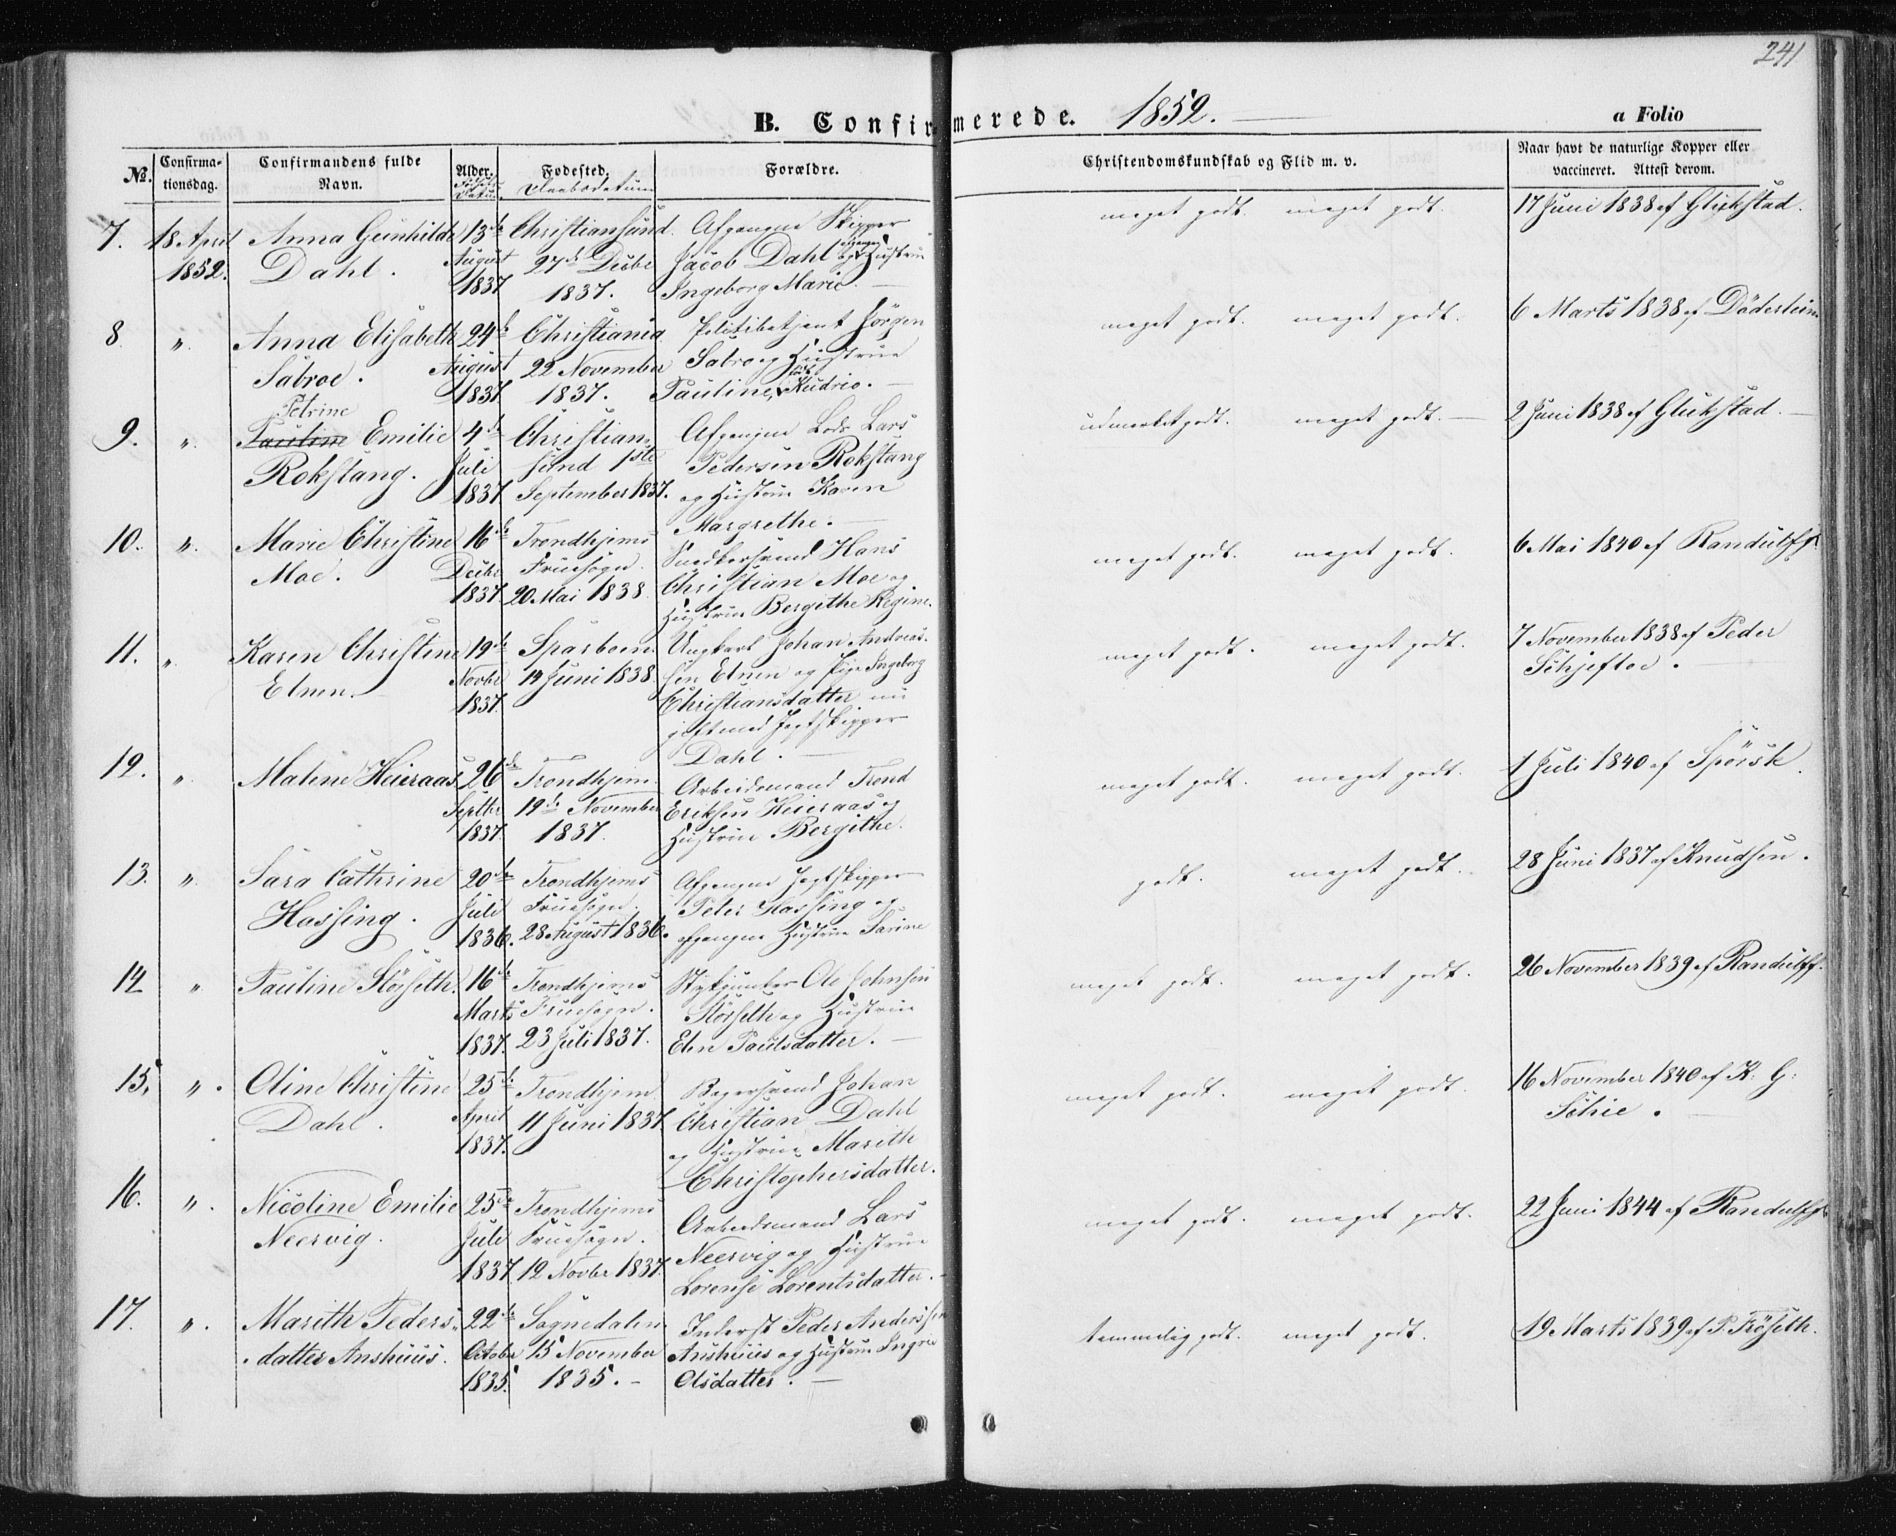 241
B. Confirmerede. 1852.
a Folio
No. Confirmationsdag. Confirmandens fulde Navn. Alder. Fødselsdatum Fodested. Daabsdatum Forældre. Christendomskundskab og Flid m. v. Naar havt de naturlige Kopper eller vaccineret. Attest derom.
7. 18 April Anna Gunhilde 13de Christiansund. Afgangne Skipper meget godt. meget godt. 17 Juni 1838 af Glükstad.
1852. Dahl. August 27de Decbr Jacob Dahl og afgangne Hustrue
1837 1837. Ingeborg Marie.
8. " Anna Elisabeth 24de Christiania Politibetjent Jörgen meget godt. meget godt. 6 Marts 1838 af Döderlein
Sabroe. August 22 November Sabro og Hustrue
1837 1837. Pauline Kudrio.
Petrine
9. " Pauline Emilie 4de Christian Afgangne Lods Lars udmærket godt. meget godt. 2 Juni 1838 af Glükstad.
Rokstang. Juli sund 1ste Pedersen Rokstang
1837 September 1837. og Hustrue Karen
Margrethe.
10. " Marie Christine 16de Trondhjems Snedkersvend Hans meget godt. meget godt. 6 Mai 1840 af Randulff
Moe. Decbr Fruesogn. Christian Moe og
1837 20 Mai 1838 Hustrue Bergithe Regine.
11. " Karen Christine 19de Sparboen Ungkarl Johan Andreas meget godt. meget godt. 7 November 1838 af Peder
Elnen. Novbr 14 Juni 1838 sen Elnen og Pige Ingeborg Schjeftoe.
1837 Christiansdatter nu
gift med Jagtskipper
Dahl.
12. " Maline Heieraas 26de Trondhjem Arbeidsmand Trond meget godt. meget godt. 1 Juli 1840 af Spörck
Septbr 19de November Eriksen Heieraas og
1837 1837. Hustrue Bergithe.
13. " Sara Cathrine 20de Trondhjems Afgangne Jagtskipper godt. meget godt. 28 Juni 1837 af Knudsen.
Hassing. Juli Fruesogn. Peter Hassing og
1836. 28 August 1836. afgangne Hustrue Sarine
14 " Pauline Störseth. 16de Trondhjems Stykjunker Ole Johnsen meget godt. meget godt. 26 November 1839 af Randulff.
Marts Fruesogn. Störseth og Hustrue
1837. 23 Juli 1837. Elen Paulsdatter.
15. " Oline Christine 25de Trondhjem Bagersvend Johan meget godt. meget godt. 16 November 1840 af K. G.
Dahl. April 11 Juni 1837. Christian Dahl Schie.
1837. og Hustrue Marith
Christophersdatter.
16. " Nicoline Emilie 25de Trondhjems Arbeidsmand Lars meget godt. meget godt. 22 Juni 1844 af Randulff
Neervig. Juli Fruesogn. Neervig og Hustrue
1837 12 Novbr 1837. Lorense Lorentsdatter.
17. " Marith Peders 22de Sognedalen Inderst Peder Anderssen temmelig godt. meget godt. 19 Marts 1839 af P. Fröseth.
datter Anshuus. October 15 November Anshuus og Hustrue Ingri
1835. 1835. Olsdatter.